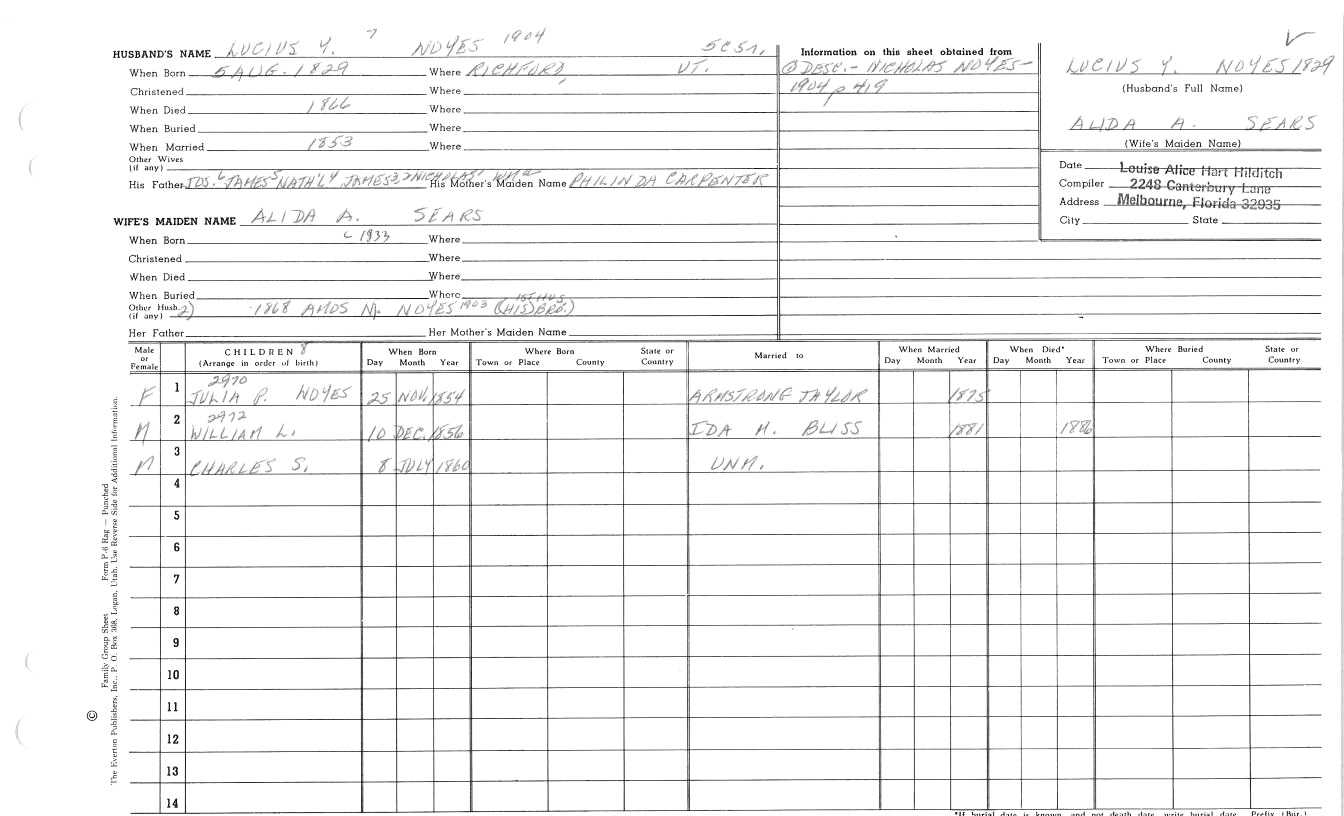 HUSBAND'S NAME LUCIUS Y. 7 NOYES 1904
When Born 5 AUG. 1829 Where RICHFORD, VT.
Christened Where
When Died 1866 Where
When Buried Where
When Married 1853 Where
Other Wives
(if any)
His Father JOS.6 JAMES5 NATH'L4 JAMES3,2 NICHOLAS1 His Mother's Maiden Name PHILINDA CARPENTER
WIFE'S MAIDEN NAME ALIDA A. SEARS
When Born C 1833 Where
Christened Where
When Died Where
When Buried Where
1ST HUS
Other Hus. 2) 1868 AMOS M. NOYES 1903 (HIS) BRO.)
(if any)
Her Father Her Mother's Maiden Name
Information on this sheet obtained from
DESC.- NICHOLAS NOYES-
1904 p 419
LUCIUS Y. NOYES 1829
(Husband's Full Name)
ALIDA A. SEARS
(Wife's Maiden Name)
Date Louise Alice Hart Hilditch
Compiler 2248 Canterbury Lane
Address Melbourne, Florida 32935
City State
Male or Female CHILDREN 8 (Arrange in order of birth) When Born Day Month Year Where Born Town or Place County State or Country Married to When Married Day Month Year When Died* Day Month Year Where Buried Town or Place County State or Country
2970
F 1 JULIA P. NOYES 25 NOV. 1854 ARMSTRONG TAYLOR 1875
2972
M 2 WILLIAM L. 10 DEC. 1856 IDA M. BLISS 1881 1886
M 3 CHARLES S. 8 JULY 1860 UNM.
4
5
6
7
8
9
10
11
12
13
14
*If burial date is known and not death date, write burial date. Prefix (Bur.)
Family Group Sheet Form P-6 Rag — Punched
© The Everton Publishers, Inc., P. O. Box 368, Logan, Utah. Use Reverse Side for Additional Information.